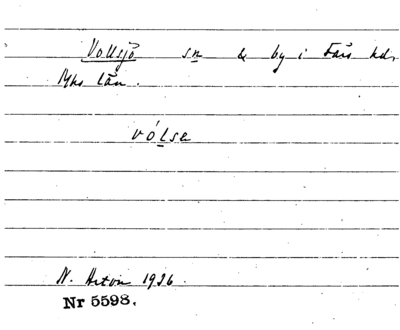 Vollsjö sn & by i Färs hd,
Mhs län.
vólse
N. 1926.
Nr 5598.